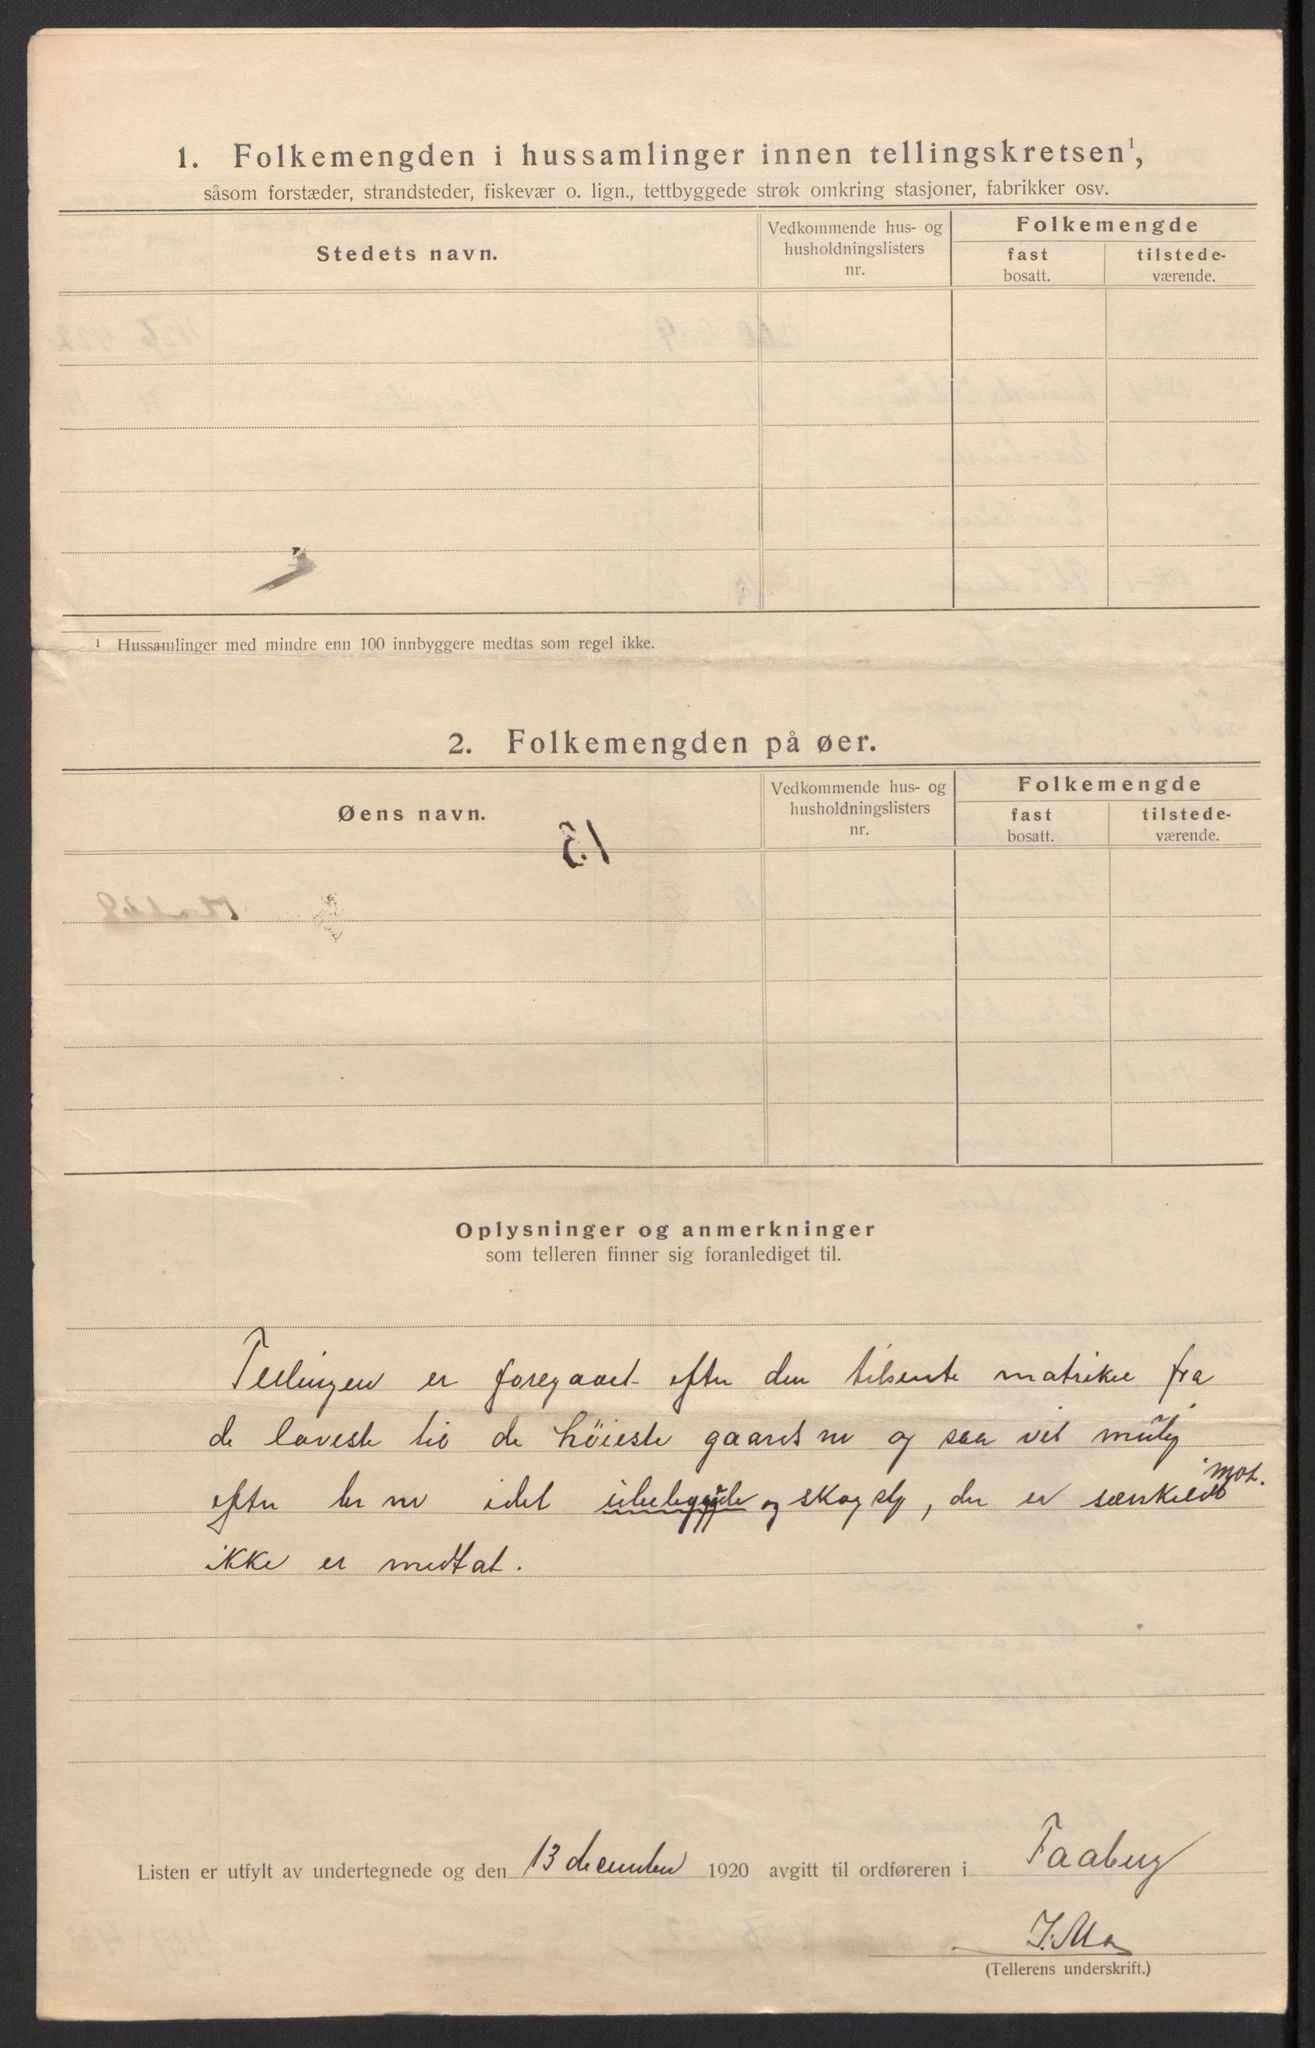 1. Folkemengden i hussamlinger innen tellingskretsen¹,
såsom forstæder, strandsteder, fiskevær o. lign., tettbyggede strøk omkring stasjoner, fabrikker osv.
Stedets navn.
Vedkommende hus- og
husholdningslisters
nr.
Folkemengde
fast
bosatt.
tilstede-
værende.
¹ Hussamlinger med mindre enn 100 innbyggere medtas som regel ikke.
2. Folkemengden på øer.
Øens navn.
Vedkommende hus- og
husholdningslisters
nr.
Folkemengde
fast
bosatt.
tilstede-
værende.
Oplysninger og anmerkninger
som telleren finner sig foranlediget til.
Tellingen er foregaaet efter den tilsente matrikel fra
de laveste til de høieste gaards nr og saa vit mulig
efter br nr idet ubebyggede og skog , der er
ikke er medtat.
Listen er utfylt av undertegnede og den 13 december 1920 avgitt til ordføreren i Faaberg
J. Mo
(Tellerens underskrift.)